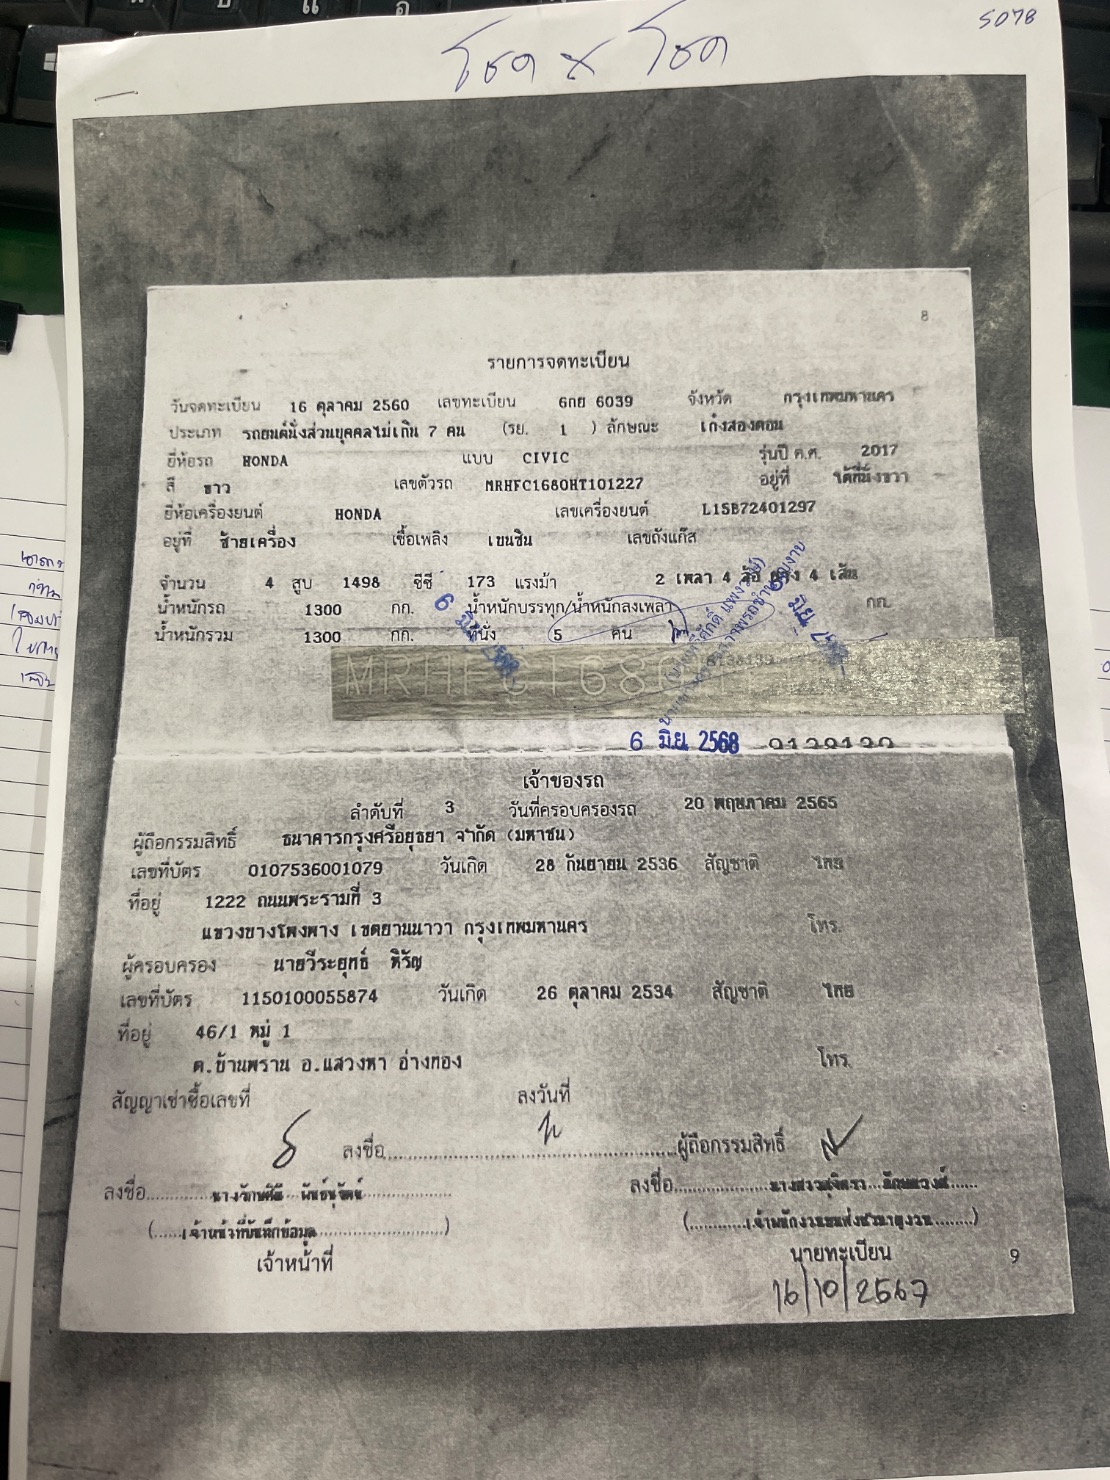 5078
โชค x โชค
8
รายการจดทะเบียน
วันจดทะเบียน 16 ตุลาคม 2560 เลขทะเบียน 6กย 6039 จังหวัด กรุงเทพมหานคร
ประเภท รถยนต์นั่งส่วนบุคคลไม่เกิน 7 คน (รย. 1 ) ลักษณะ เก๋งสองตอน
ยี่ห้อรถ HONDA แบบ CIVIC รุ่นปี ค.ศ. 2017
สี ขาว เลขตัวรถ MRHFC1680HT101227 อยู่ที่ ใต้ที่นั่งขวา
ยี่ห้อเครื่องยนต์ HONDA เลขเครื่องยนต์ L15B72401297
อยู่ที่ ซ้ายเครื่อง เชื้อเพลิง เบนซิน เลขถังแก๊ส
จำนวน 4 สูบ 1498 ซีซี 173 แรงม้า 2 เพลา 4 ล้อ ยาง 4 เส้น
น้ำหนักรถ 1300 กก. น้ำหนักบรรทุก/น้ำหนักลงเพลา กก.
น้ำหนักรวม 1300 กก. ที่นั่ง 5 คน
MRHFC1680
6 มิ.ย. 2568
เจ้าของรถ
ลำดับที่ 3 วันที่ครอบครองรถ 20 พฤษภาคม 2565
ผู้ถือกรรมสิทธิ์ ธนาคารกรุงศรีอยุธยา จำกัด (มหาชน)
เลขที่บัตร 0107536001079 วันเกิด 28 กันยายน 2536 สัญชาติ ไทย
ที่อยู่ 1222 ถนนพระรามที่ 3
แขวงบางโพงพาง เขตยานนาวา กรุงเทพมหานคร โทร.
ผู้ครอบครอง นายวีระยุทธ์ หิรัญ
เลขที่บัตร 1150100055874 วันเกิด 26 ตุลาคม 2534 สัญชาติ ไทย
ที่อยู่ 46/1 หมู่ 1
ต.บ้านพราน อ.แสวงหา อ่างทอง โทร.
สัญญาเช่าซื้อเลขที่ ลงวันที่
ลงชื่อ ผู้ถือกรรมสิทธิ์
ลงชื่อ ลงชื่อ
(เจ้าหน้าที่บันทึกข้อมูล)
เจ้าหน้าที่ นายทะเบียน
9
16/10/2567